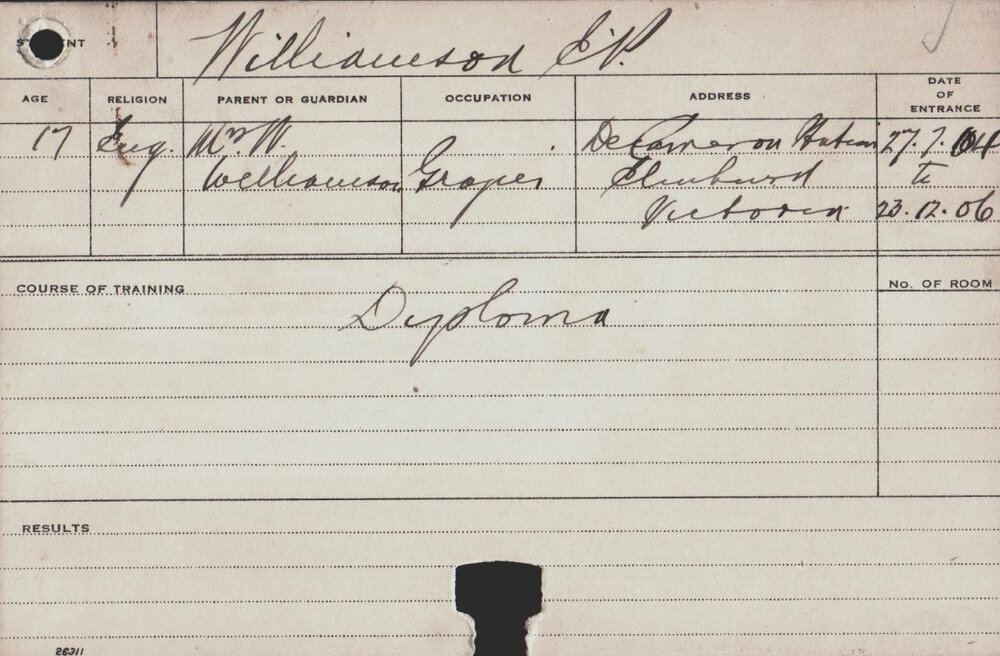 STUDENT Williamson E.P.
AGE RELIGION PARENT OR GUARDIAN OCCUPATION ADDRESS DATE OF ENTRANCE
17 Eng. Mr W. De Cameron Station 27.7.04
Williamson Grazier Elmhurst to
Victoria 23.12.06
COURSE OF TRAINING No. OF ROOM
Diploma
RESULTS
26311